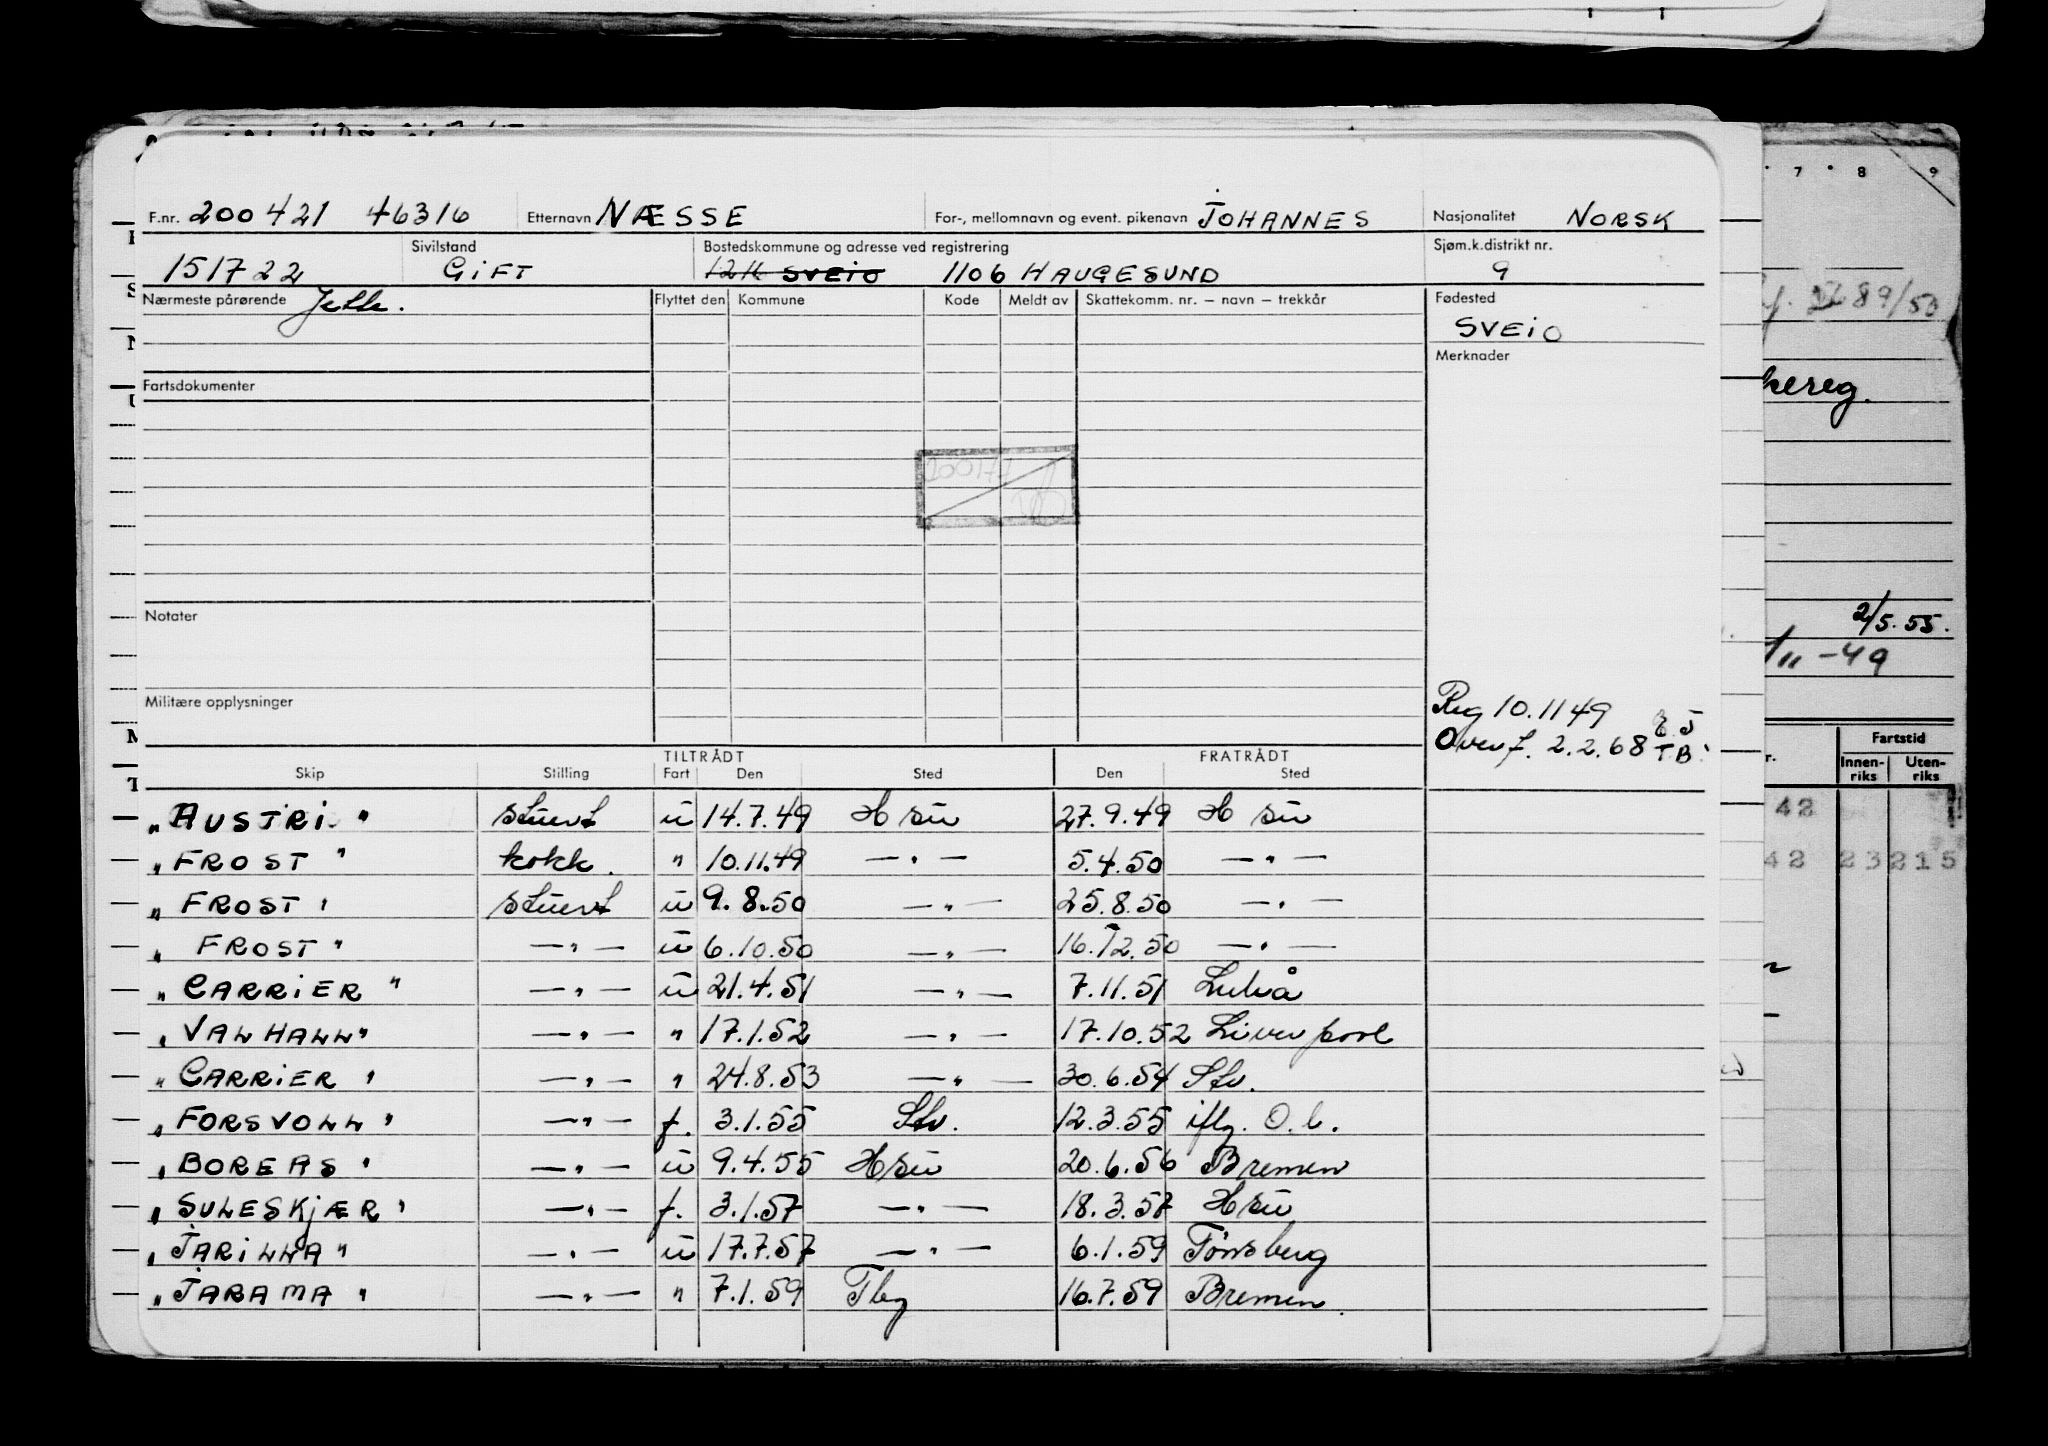 F.nr. 200421 46316 Etternavn NÆSSE For-, mellomnavn og event. pikenavn JOHANNES Nasjonalitet NORSK
151722 Sivilstand GIFT Bostedskommune og adresse ved registrering SVEIO 1106 HAUGESUND Sjøm.k.distrikt nr. 9
Nærmeste pårørende Flyttet den Kommune Kode Meldt av Skattekomm. nr. – navn – trekkår Fødested
SVEIO
Merknader
Fartsdokumenter
Notater
Militære opplysninger
Reg 10.1149 E J
Overf. 2.2.68 T.B.
TILTRÅDT FRATRÅDT
Skip Stilling Fart Den Sted Den Sted
„AUSTRI" stuert u 14.7.49 Hsu 27.9.49 Hsu
„FROST" kokk. " 10.11.49 —„— 5.4.50 —„—
„FROST" stuert u 9.8.50 —„— 25.8.50 —„—
„FROST" —„— u 6.10.50 —„— 16.12.50 —„—
„CARRIER" —„— u 21.4.51 —„— 7.11.51 Luleå
„VALHALL" —„— " 17.1.52 —„— 17.10.52 Liverpool
„CARRIER" —„— " 24.8.53 —„— 30.6.54 Stv.
„FORSVOLL" —„— f. 3.1.55 Stv. 12.3.55 iflg. O.b.
„BOREAS" —„— u 9.4.55 Hsu 20.6.56 Bremen
„SULESKJÆR" —„— f. 3.1.57 —„— 18.3.57 Hsu
„JARILLA" —„— u 17.7.57 —„— 6.1.59 Tønsberg
„JARAMA" —„— " 7.1.59 Tbg 16.7.59 Bremen.
7 8 9
89/53
kereg.
2/5.55.
/11 -49
Fartstid
Innen-
riks
Uten-
riks
42
42 23 215